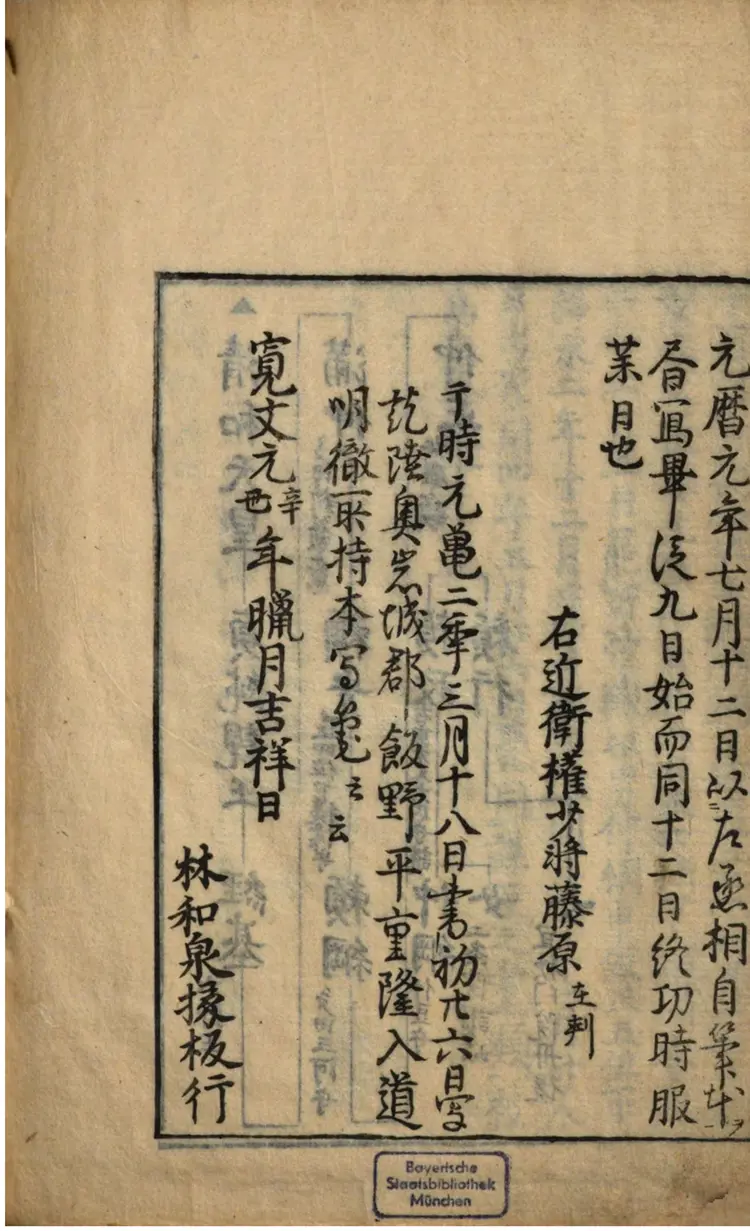 元暦元年七月十二日以左丞相自筆本
昏寫畢從九日始而同十二日終功時服
業日也
右近衛權少將藤原在判
于時元亀二季三月十八日書初廿六日写
訖陸奥岩城郡飯野平重隆入道
明徹所持本写 云云
寛文元辛丑年臘月吉祥日
林和泉掾板行
Bayerische
Staatsbibliothek
München